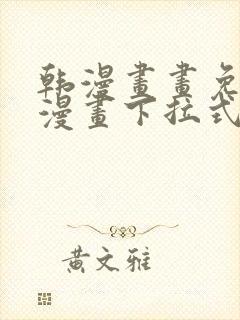 韩漫畫畫免
漫畫下拉式
黄文雅